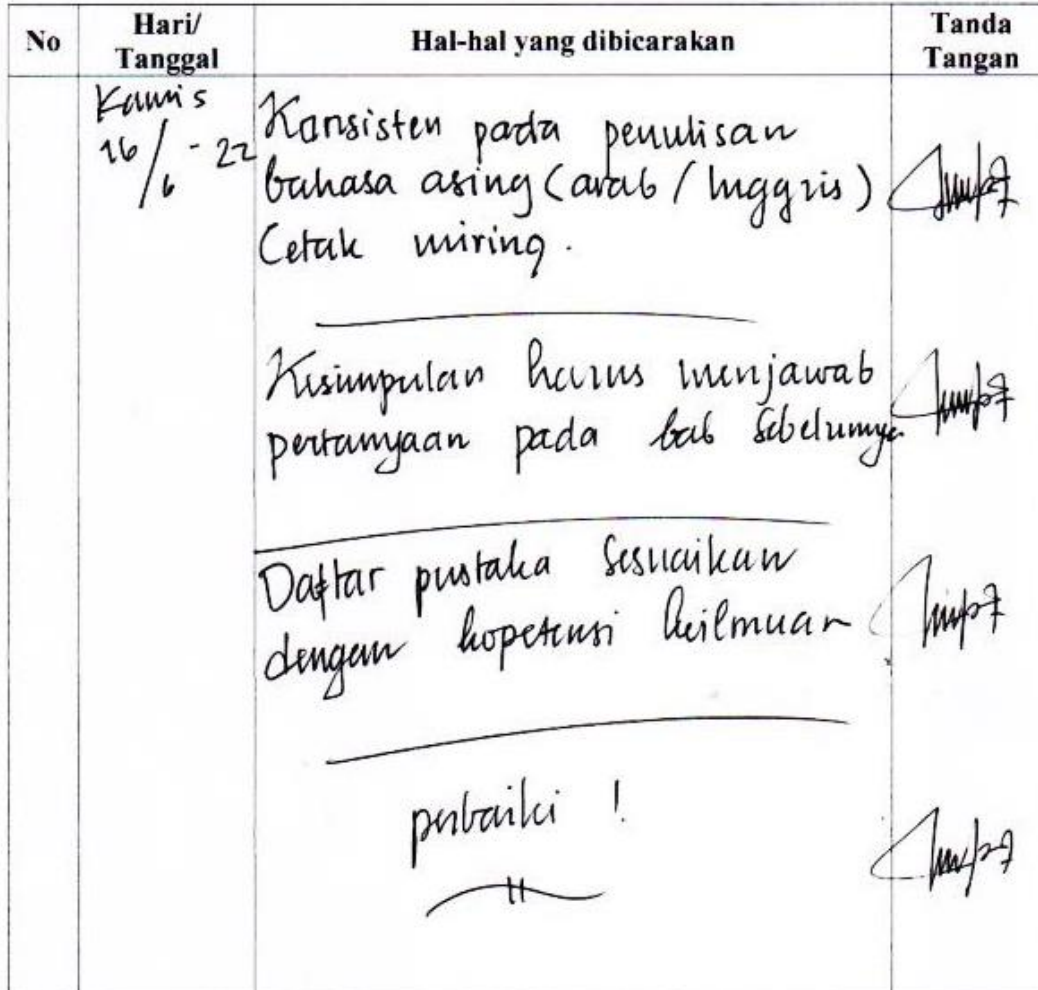 No
Hari/
Tanggal
Hal-hal yang dibicarakan
Tanda
Tangan
Kamis
16/6 - 22
Konsisten pada penulisan
bahasa asing (arab / Inggris)
Cetak miring.
Kesimpulan harus menjawab
pertanyaan pada bab sebelumnya
Daftar pustaka sesuaikan
dengan kopetensi keilmuan
perbaiki !